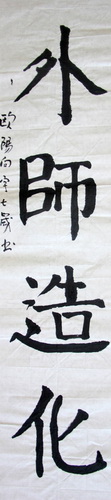 外師造化
欧陽向宇七歲書